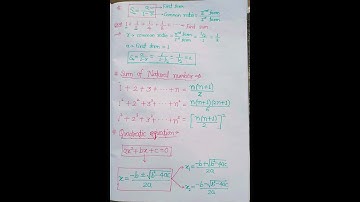 S∞ = a/(1-r) → First term
→ Common ratio = 2nd term/1st term
1 + 1/2 + 1/4 + 1/8 + ...
→ r = common ratio = 2nd term/1st term = (1/2)/1 = 1/2
a = First term = 1
Sum of Natural number →
1 + 2 + 3 + ... + n = n(n+1)/2
1² + 2² + 3² + ... + n² = n(n+1)(2n+1)/6
1³ + 2³ + 3³ + ... + n³ = [n(n+1)/2]²
Quadratic equation →
ax² + bx + c = 0
x = (-b ± √(b²-4ac))/2a
x₁ = (-b + √(b²-4ac))/2a
x₂ = (-b - √(b²-4ac))/2a